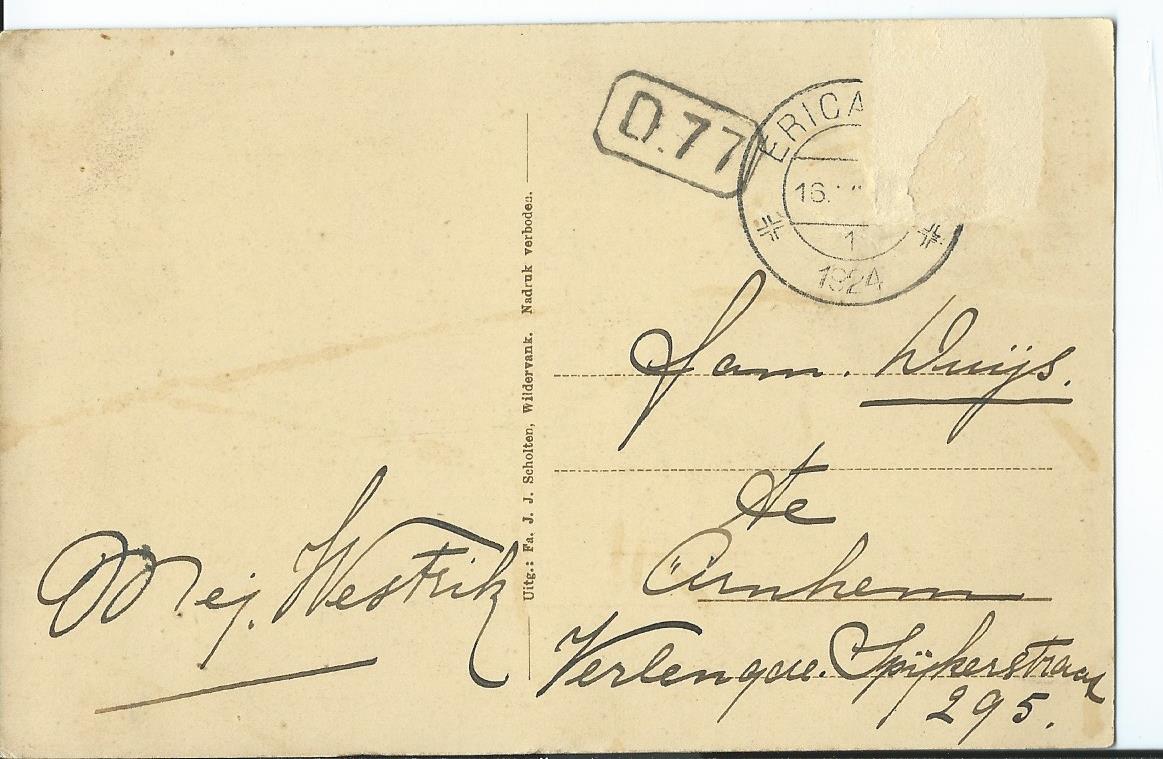 D.77
ERICA
16.
1
1924
Uitg.: Fa. J. J. Scholten, Wildervank. Nadruk verboden.
Fam. Duijs.
te
Arnhem
Verlengde. Spijkerstraat
295.
Mej. Westrik